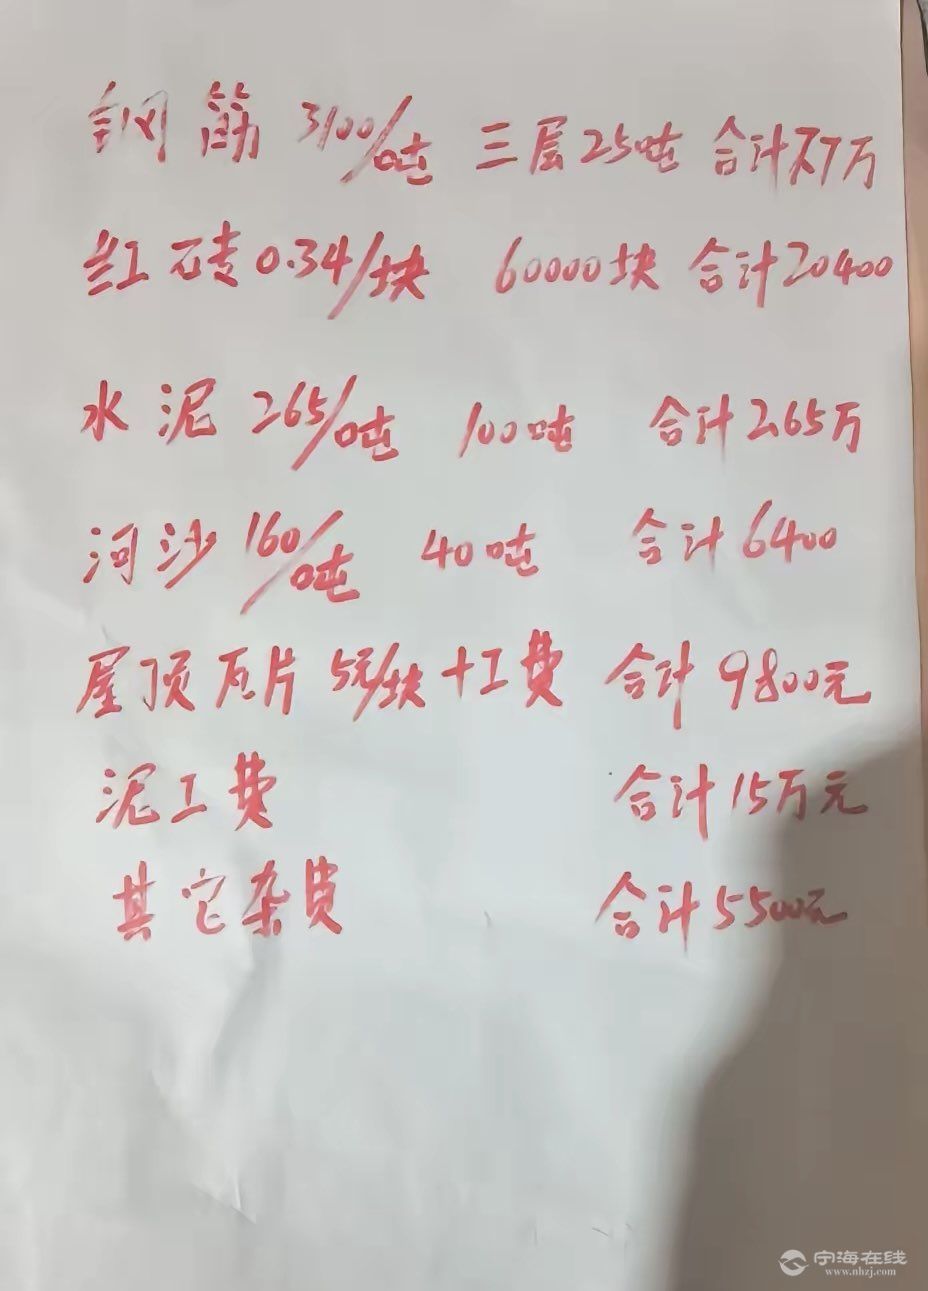 钢筋 3100/吨 三层25吨 合计7.7万
红砖0.34/块 60000块 合计20400
水泥 265/吨 100吨 合计2.65万
河沙 160/吨 40吨 合计6400
屋顶瓦片 5元/块+工费 合计9800元
泥工费 合计15万元
其它杂费 合计5500元
宁海在线
www.nhzj.com